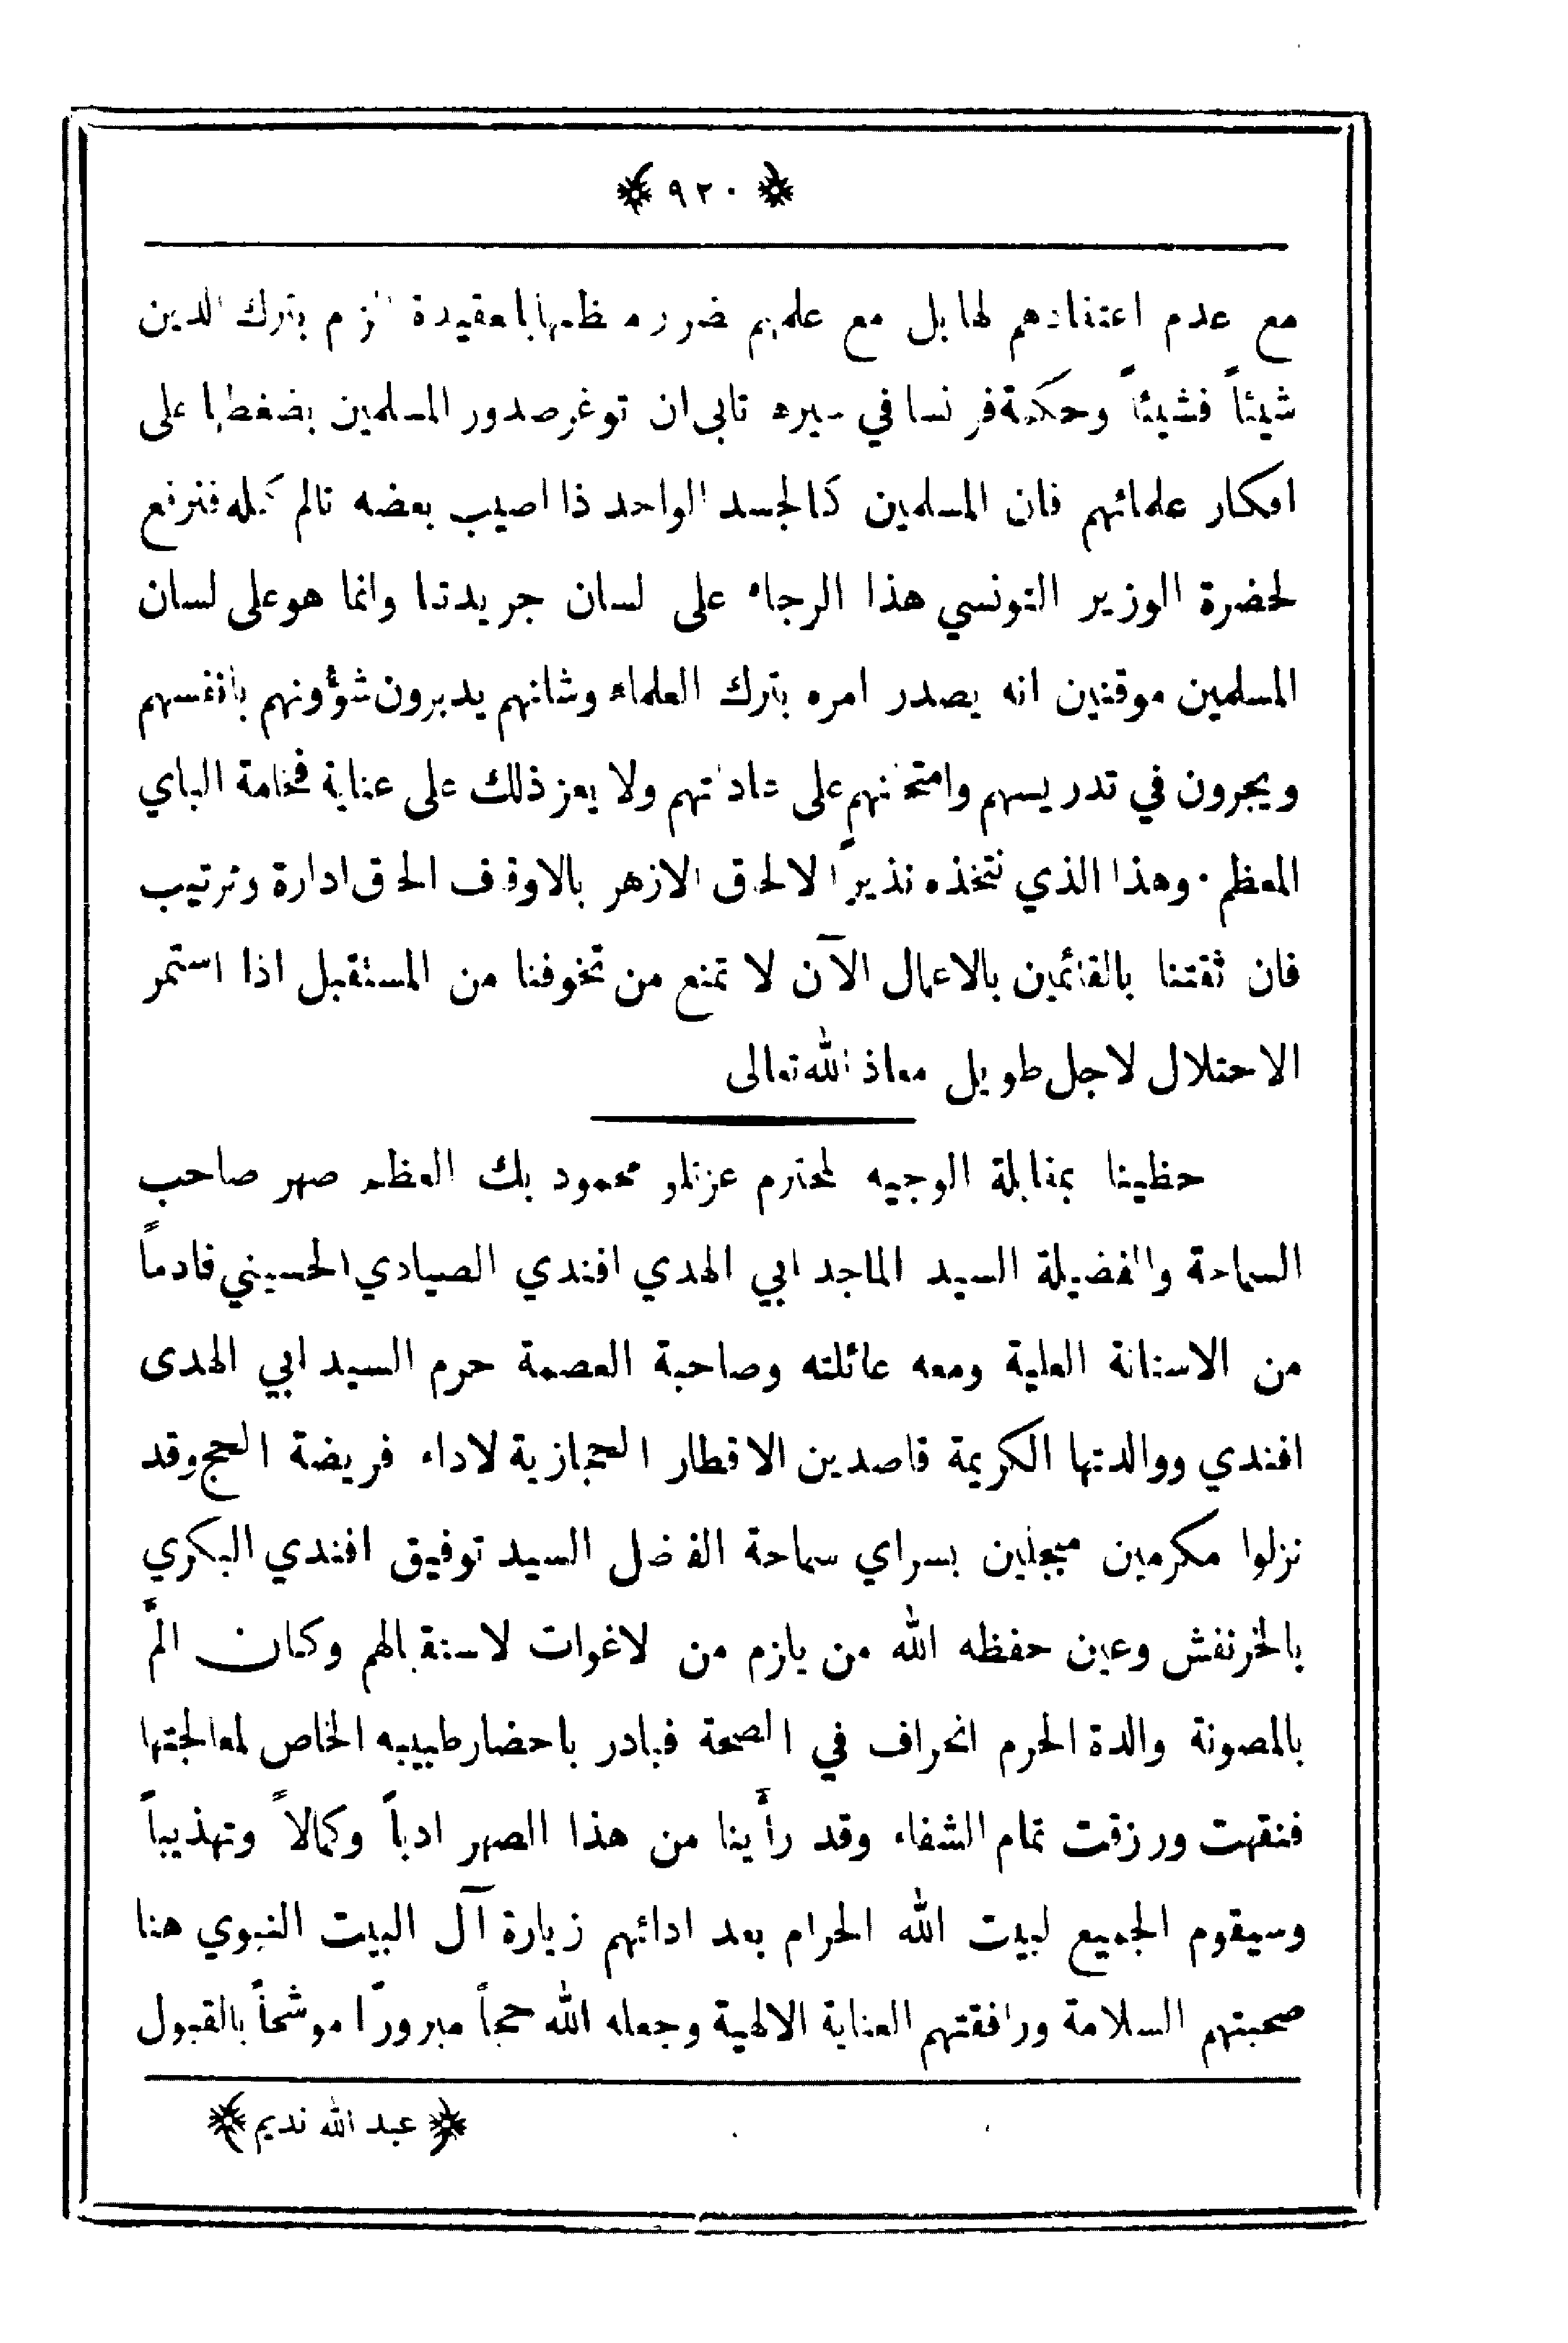 ﴿ ٩٢٠ ﴾
مع عدم اعتقادهم لها بل مع علمهم ضرر بالعقيدة بترك الدين
شيئاً فشيئاً وحكمة فرنسا في سيره تابى ان توغر صدور المسلمين بضغطها على
افكار علمائهم فان المسلمين كالجسد الواحد اذا اصيب بعضه تالم كله فنرفع
لحضرة الوزير التونسي هذا الرجاء على لسان جريدتنا وانما هو على لسان
المسلمين موقنين انه يصدر امره بترك العلماء وشانهم يدبرون شؤونهم بانفسهم
ويجرون في تدريسهم وامتحانهم على عاداتهم ولا يعز ذلك على عناية فخامة الباي
المعظم . وهذا الذي نتخذه نذيراً لالحاق الازهر بالاوقاف الحاق ادارة وترتيب
فان ثقتنا بالقائمين بالاعمال الآن لا تمنع من تخوفنا من المستقبل اذا استمر
الاحتلال لاجل طويل معاذ الله تعالى
حظينا بمقابلة الوجيه المحترم عزتلو محمود بك العظم صهر صاحب
السماحة والفضيلة السيد الماجد ابي الهدي افندي الصيادي الحسيني قادماً
من الاستانة العلية ومعه عائلته وصاحبة العصمة حرم السيد ابي الهدى
افندي ووالدتها الكريمة قاصدين الاقطار الحجازية لاداء فريضة الحج وقد
نزلوا مكرمين مبجلين بسراي سماحة الفاضل السيد توفيق افندي البكري
بالخرنفش وعين حفظه الله من يلزم من الاغوات لاستقبالهم وكان المَّ
بالمصونة والدة الحرم انحراف في الصحة فبادر باحضار طبيبه الخاص لمعالجتها
فنقهت ورزقت تمام الشفاء وقد رأينا من هذا الصهر ادباً وكمالاً وتهذيباً
وسيقوم الجميع لبيت الله الحرام بعد ادائهم زيارة آل البيت النبوي هنا
صحبتهم السلامة ورافقتهم العناية الالهية وجعله الله حجاً مبروراً موشحاً بالقبول
﴿ عبد الله نديم ﴾